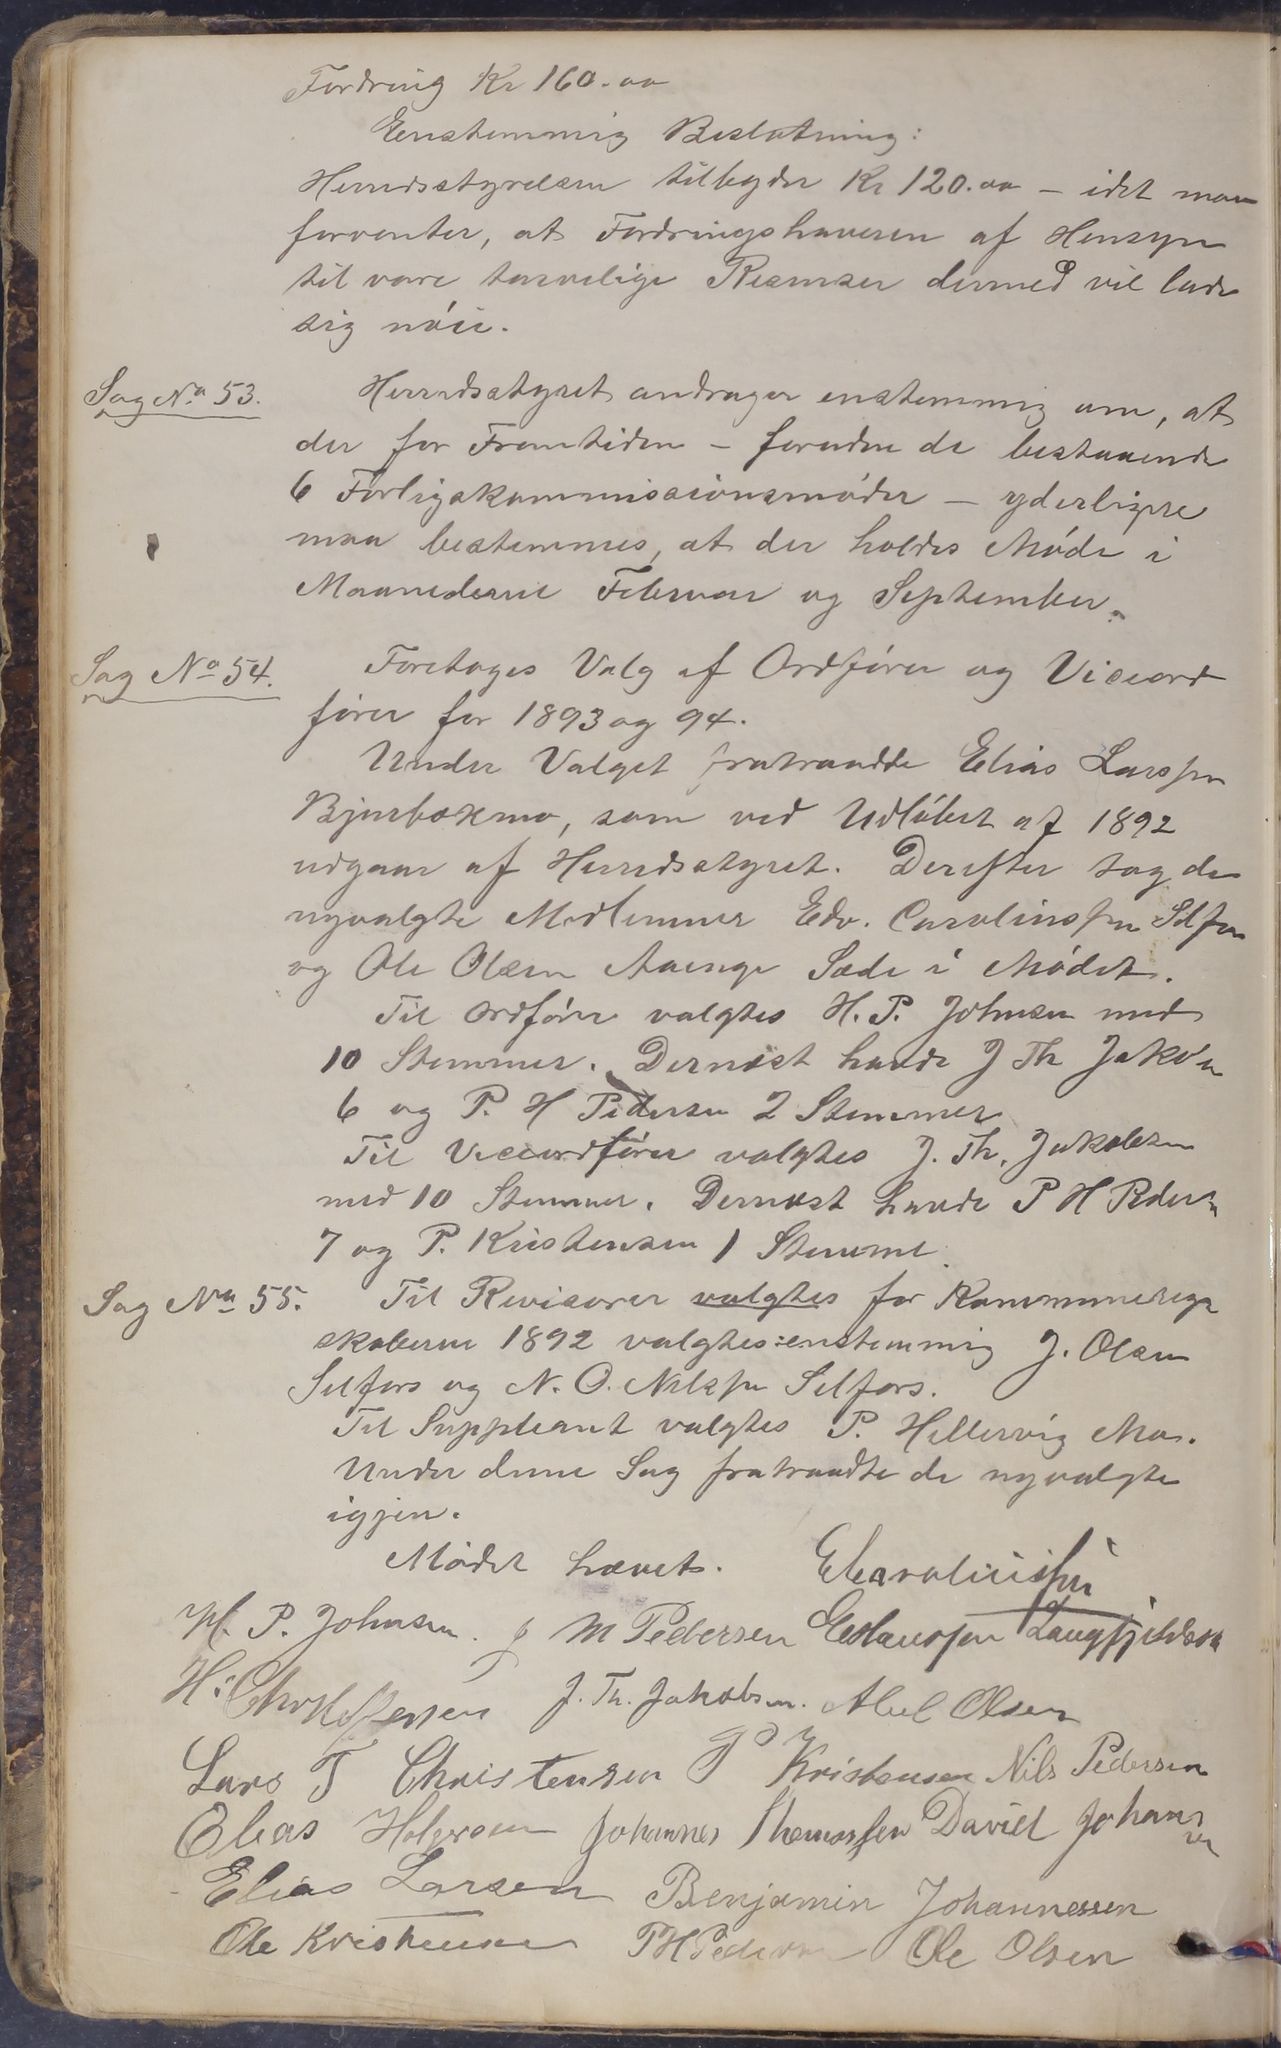 Fordring Kr 160.00
Eenstemmig Beslutning:
Herredsstyrelsen tilbyder Kr 120.00 – idet man
forventer, at Fordringshaveren af Hensyn
til vore tarvelige Resurser dermed vil lade
sig nöie.
Sag No 53.
Herredsstyret andrager enstemmig om, at
der for Fremtiden – foruden de bestaaende
6 Forligskommissionsmöder – yderligere
maa bestemmes, at der holdes Möde i
Maanederne Februar og September.
Sag No 54.
Foretoges Valg af Ordförer og Viceord
förer for 1893 og 94.
Under Valget fratraadde Elias Larssen
Bjurbækmo, som ved Udlöbet af 1892
udgaar af Herredsstyret. Derefter tog de
nyvalgte Medlemmer Edv. Carolinssen Selfors
og Ole Olsen Aaenge Sæde i Mödet.
Til Ordförer valgtes H. P. Johnsen med
10 Stemmer. Dernæst havde J Th Jakobsen
6 og P. H Pedersen 2 Stemmer
Til Viceordförer valgtes J. Th. Jakobsen
med 10 Stemmer. Dernæst havde P H Pedersen
7 og P. Kristensen 1 Stemme.
Sag No 55.
Til Revisorer valgtes for Kommuneregn
skaberne 1892 valgtes enstemmig J. Olsen
Selfors og N. O. Nilssen Selfors.
Til Suppleant valgtes P. Hellervig Mo.
Under denne Sag fratraadte de nyvalgte
igjen.
Mödet hævet. E Carolinssen
H. P. Johnsen. J M Pedersen Langfjeldesn
H: Christoffersen J. Th. Jakobsen. Abel Olsen
Lars T Christensen P Kristensen Nils Pedersen
Elias Holgersen Johannes Thomassen David Johan
sen
Elias Larsen Benjamin Johannessen
Ole Kristensen P H Pedersen Ole Olsen